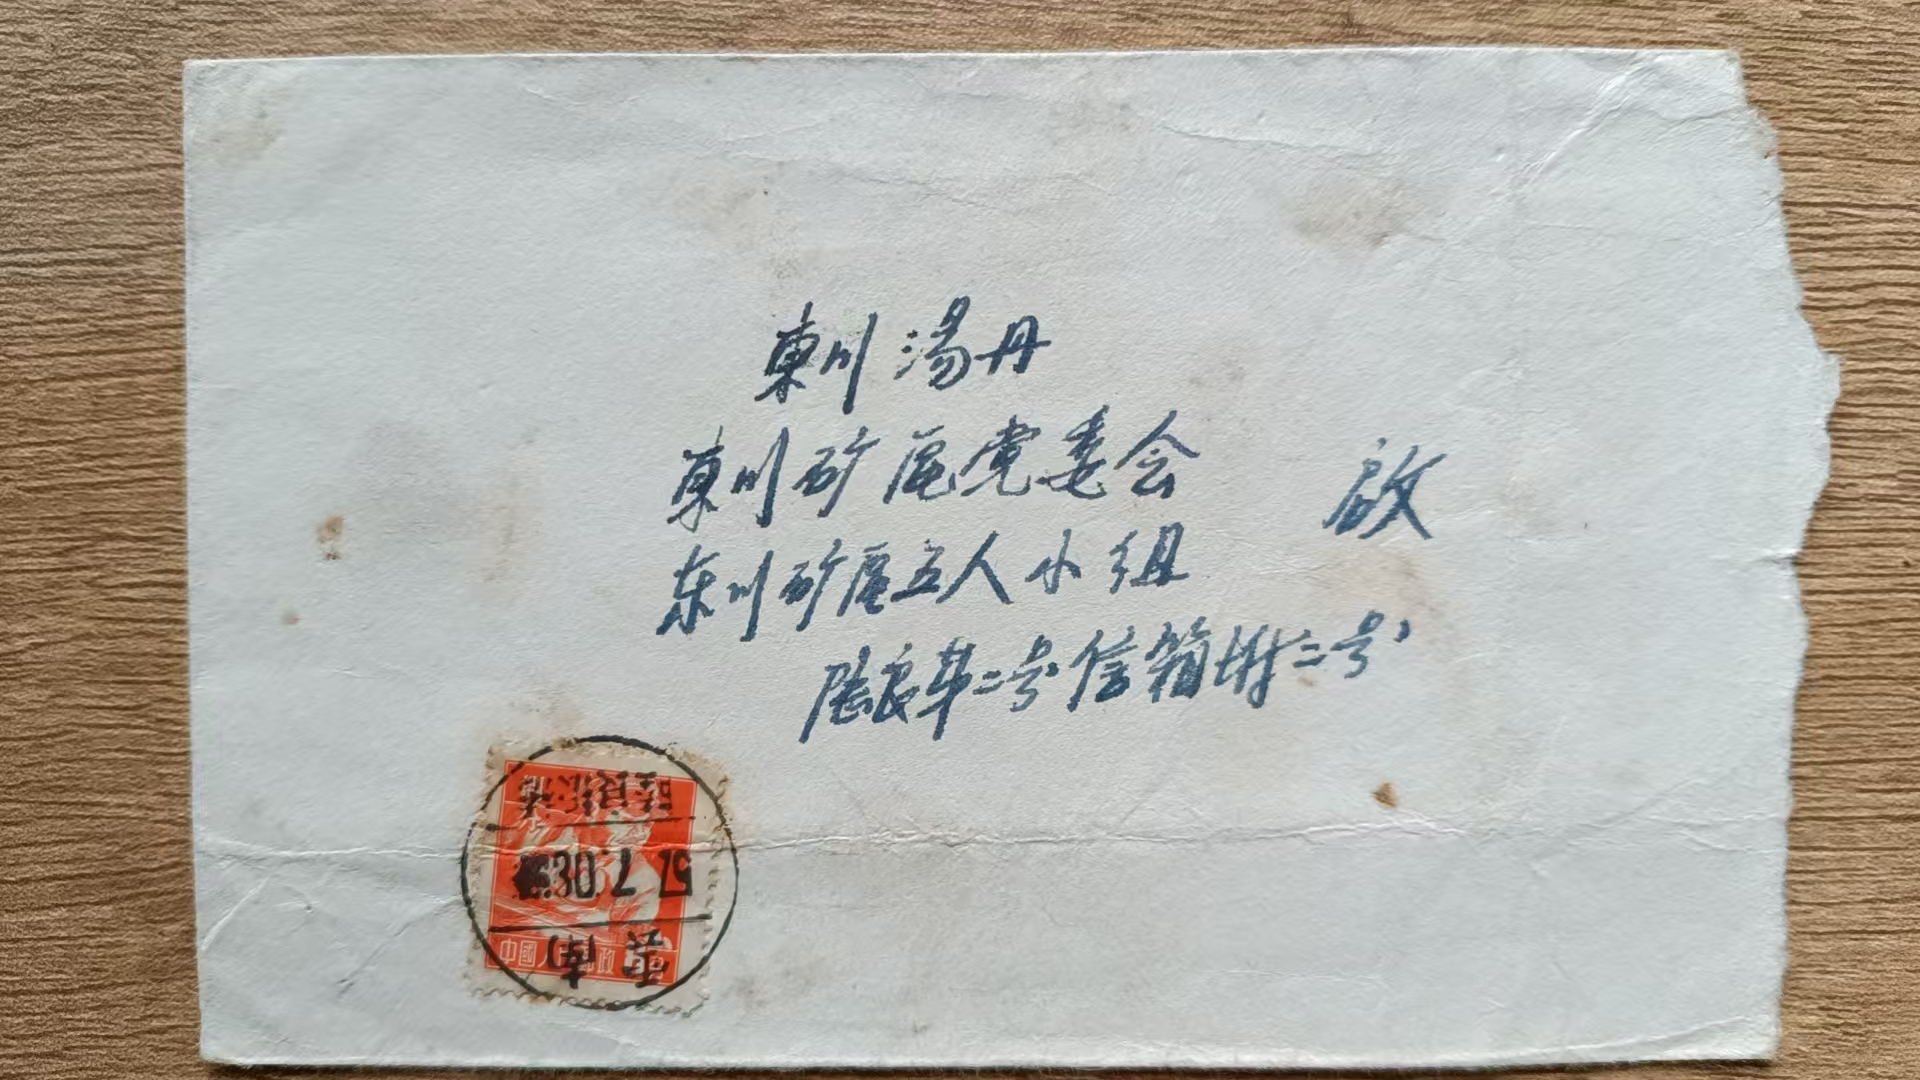 東川湯丹
東川矿區党委会
东川矿區五人小组
啟
陆良第二号信箱附二号
57.7.30
雲南
中國人民邮政 8